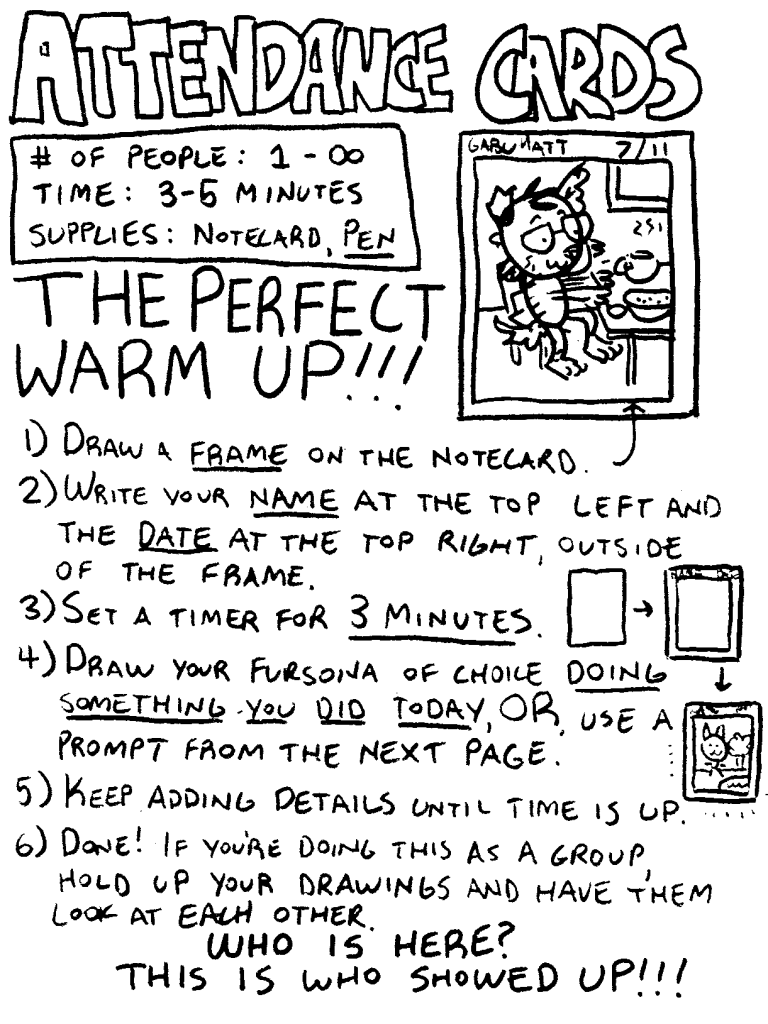 ATTENDANCE CARDS
# OF PEOPLE: 1 - ∞
TIME: 3-5 MINUTES
SUPPLIES: NOTECARD, PEN
7/11
THE PERFECT
WARM UP!!!
1) DRAW A FRAME ON THE NOTECARD.
2) WRITE YOUR NAME AT THE TOP LEFT AND
THE DATE AT THE TOP RIGHT, OUTSIDE
OF THE FRAME.
3) SET A TIMER FOR 3 MINUTES.
4) DRAW YOUR FURSONA OF CHOICE DOING
SOMETHING YOU DID TODAY, OR, USE A
PROMPT FROM THE NEXT PAGE.
5) KEEP ADDING DETAILS UNTIL TIME IS UP.
6) DONE! IF YOU'RE DOING THIS AS A GROUP,
HOLD UP YOUR DRAWINGS AND HAVE THEM
LOOK AT EACH OTHER.
WHO IS HERE?
THIS IS WHO SHOWED UP!!!